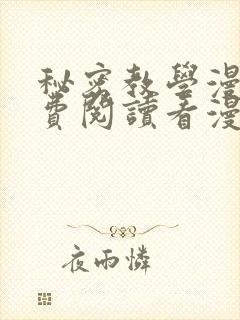 秘密教學漫
費閱讀看漫
夜雨憐